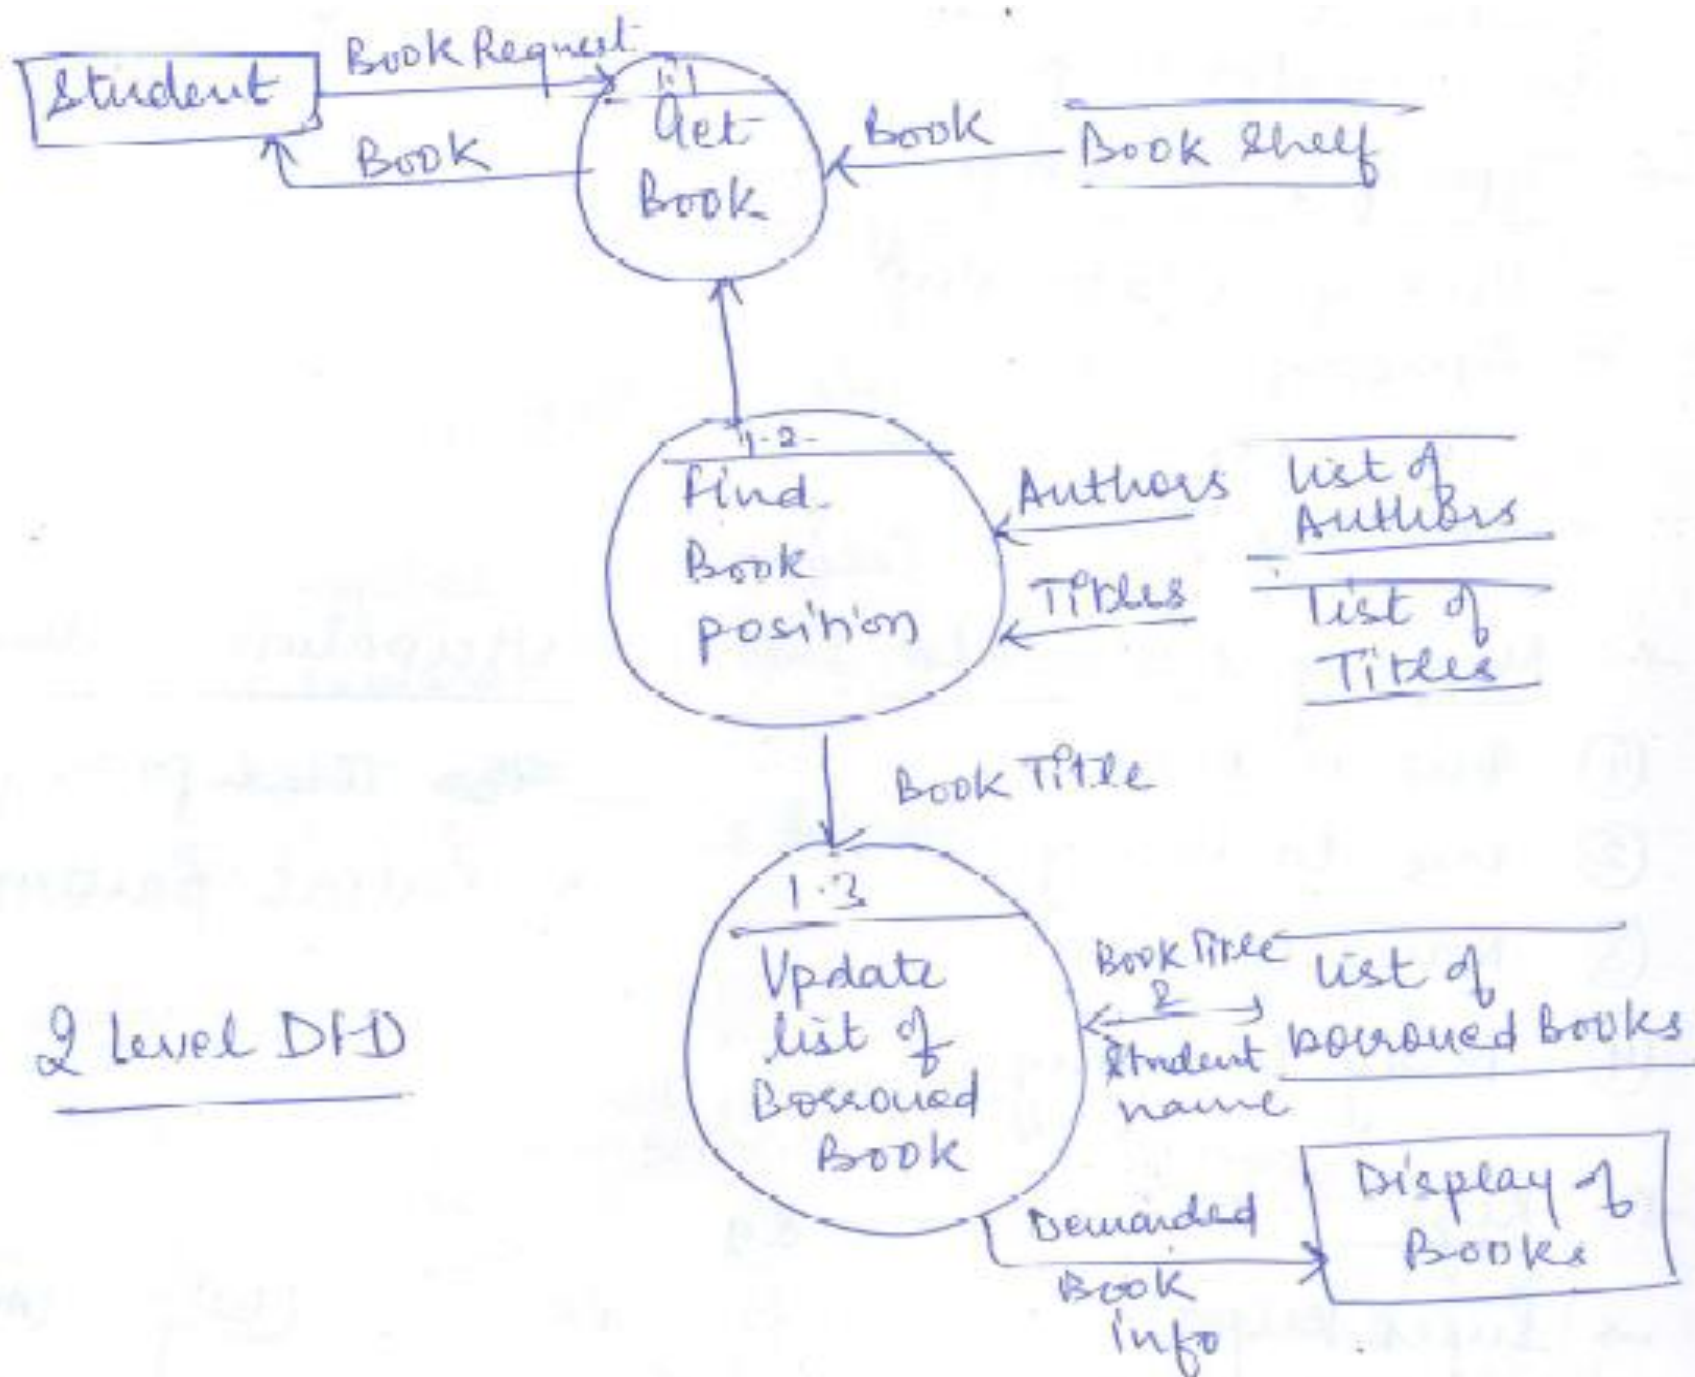 Book Request
Student
1.1
Get
Book
Book
Book
Book Shelf
1.2
Find
Book
position
Authors
List of
Authors
Titles
List of
Titles
Book Title
1.3
Update
list of
Borrowed
Book
Book Title
&
Student
name
List of
Borrowed Books
2 Level DFD
Demanded
Book
info
Display of
Books